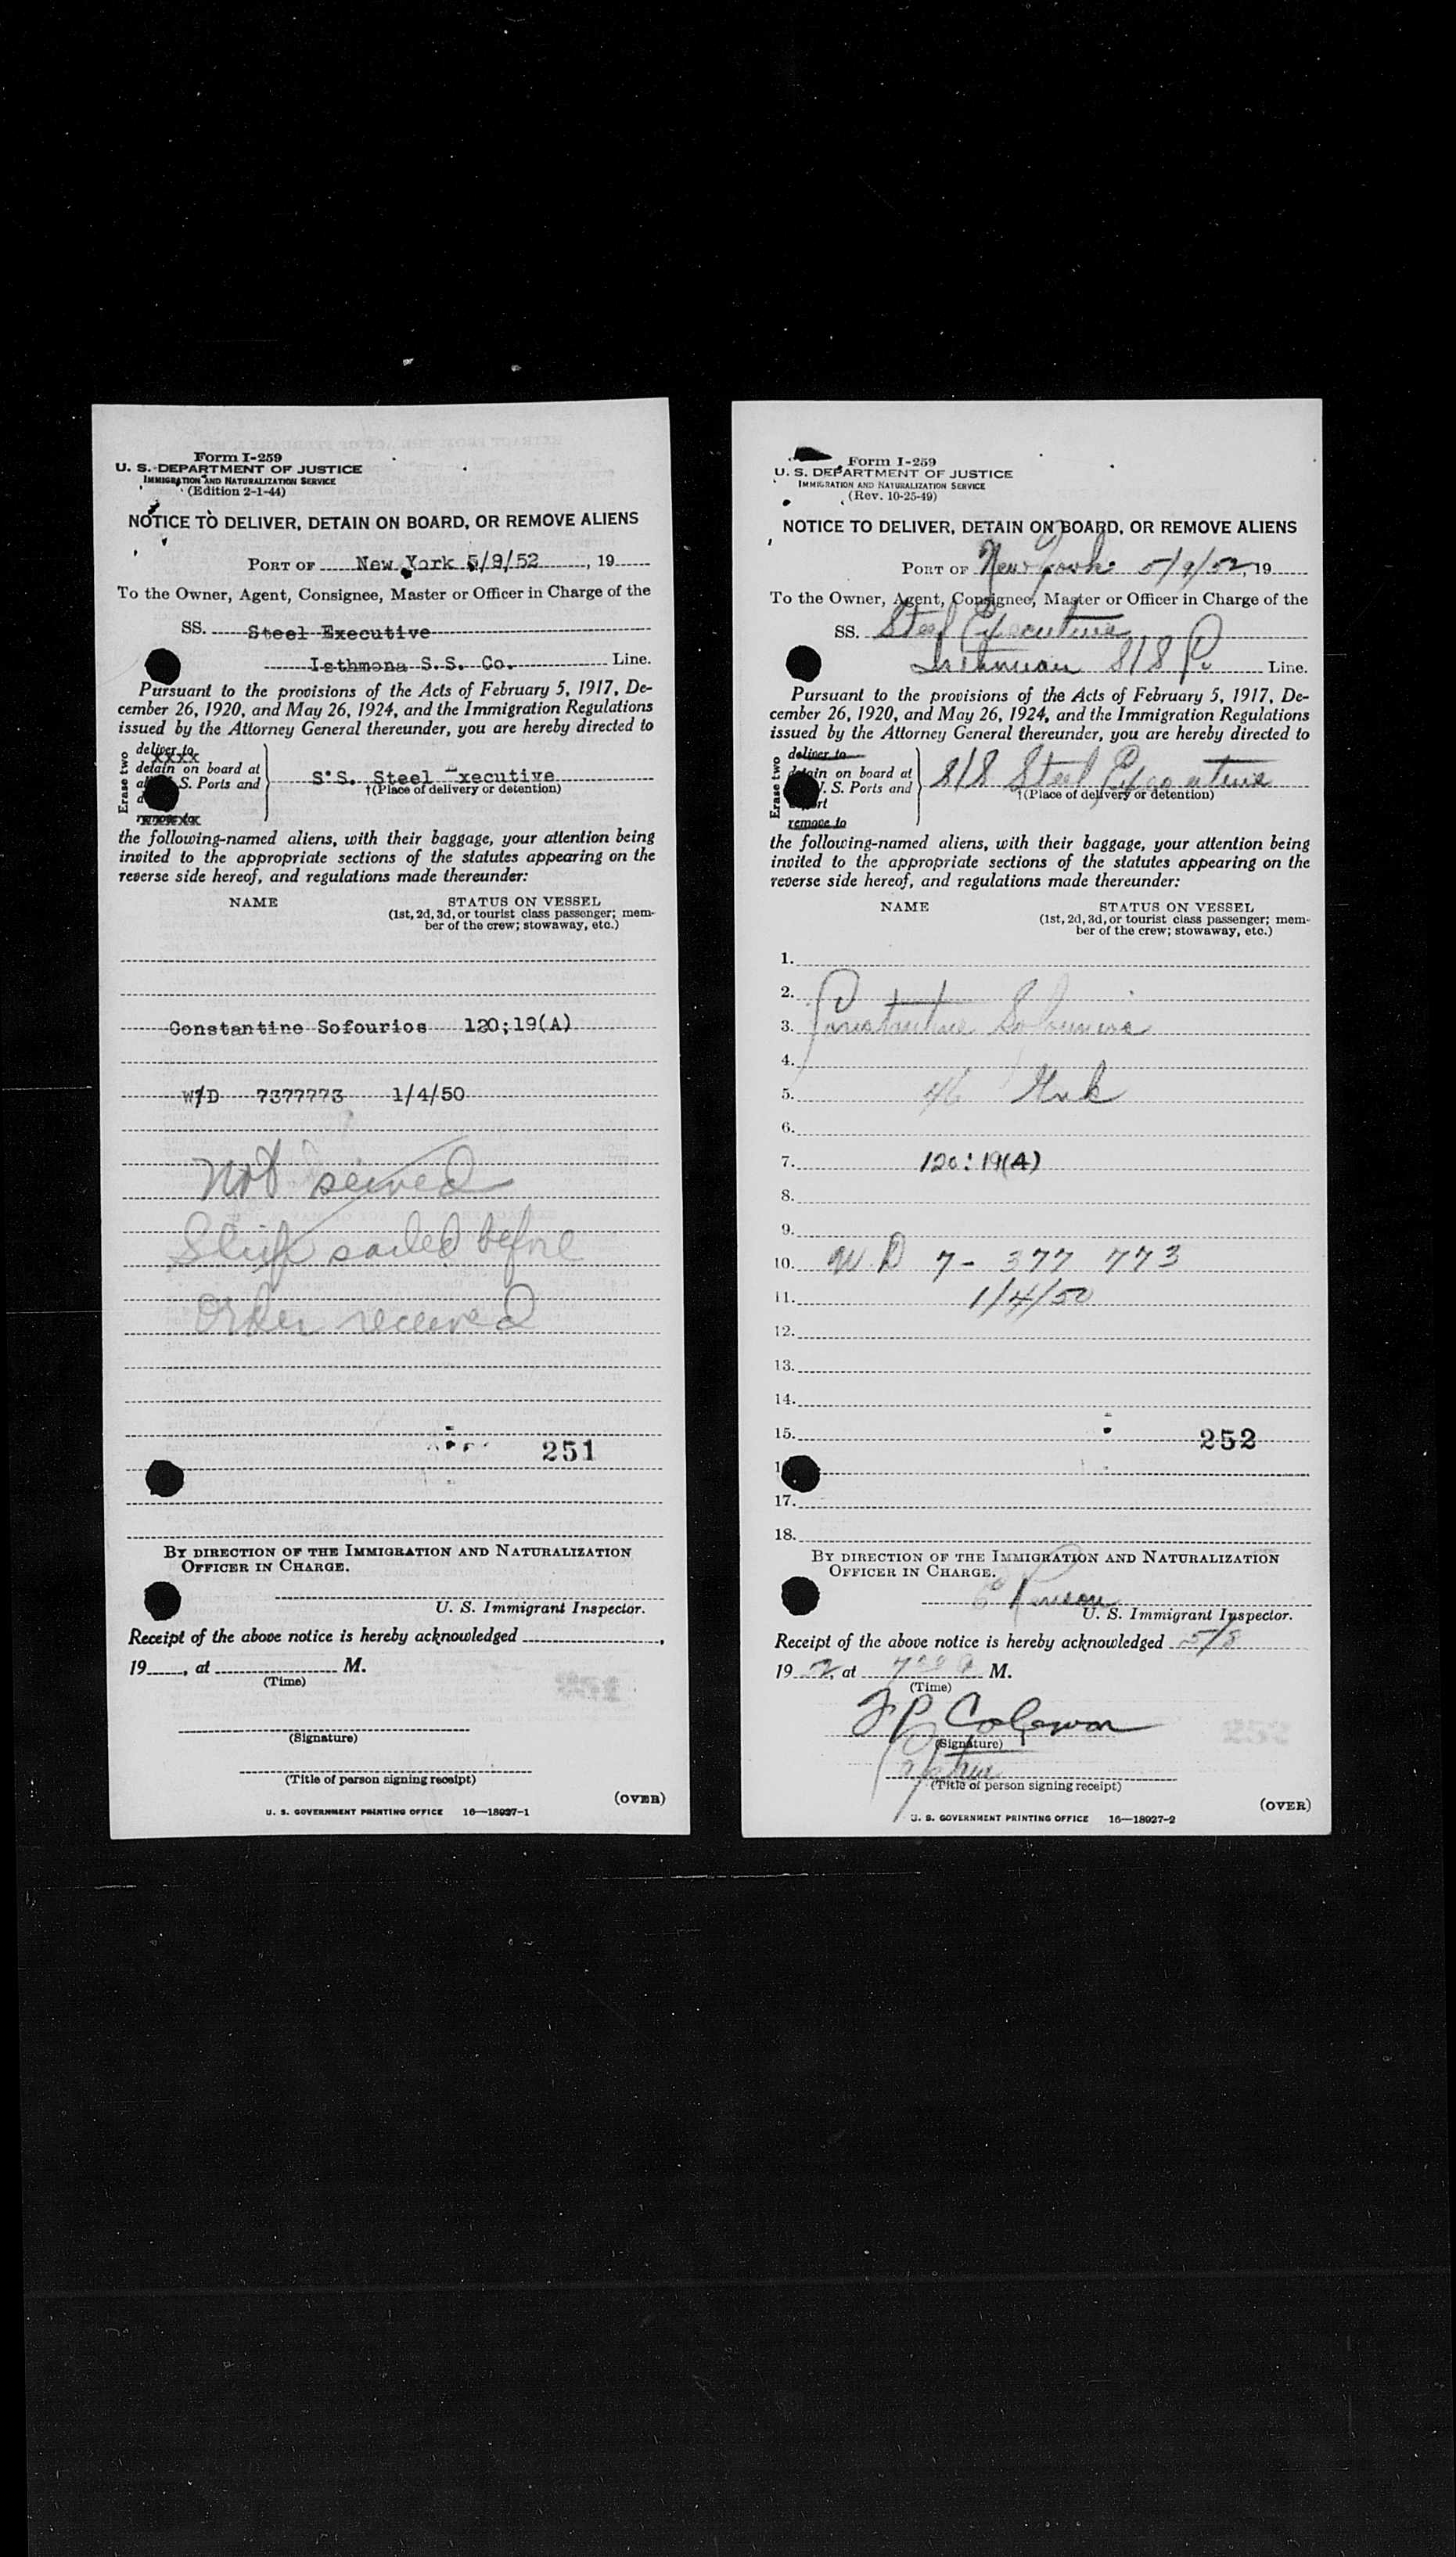 Form I-259
U. S. DEPARTMENT OF JUSTICE
IMMIGRATION AND NATURALIZATION SERVICE
(Edition 2-1-44)
NOTICE TO DELIVER, DETAIN ON BOARD, OR REMOVE ALIENS
PORT OF New York 5/9/52, 19
To the Owner, Agent, Consignee, Master or Officer in Charge of the
SS. Steel Executive
Isthmona S.S. Co. Line.
Pursuant to the provisions of the Acts of February 5, 1917, De-
cember 26, 1920, and May 26, 1924, and the Immigration Regulations
issued by the Attorney General thereunder, you are hereby directed to
Erase two
deliver to
detain on board at
S. Ports and
remove to
S.S. Steel Executive
†(Place of delivery or detention)
the following-named aliens, with their baggage, your attention being
invited to the appropriate sections of the statutes appearing on the
reverse side hereof, and regulations made thereunder:
NAME STATUS ON VESSEL
(1st, 2d, 3d, or tourist class passenger; mem-
ber of the crew; stowaway, etc.)
Constantine Sofourios 120;19(A)
W/D 7377773 1/4/50
Not served
Ship sailed before
Order received
251
BY DIRECTION OF THE IMMIGRATION AND NATURALIZATION
OFFICER IN CHARGE.
U. S. Immigrant Inspector.
Receipt of the above notice is hereby acknowledged ,
19 , at M.
(Time)
(Signature)
(Title of person signing receipt)
(OVER)
U. S. GOVERNMENT PRINTING OFFICE 16—18927-1
Form I-259
U. S. DEPARTMENT OF JUSTICE
IMMIGRATION AND NATURALIZATION SERVICE
(Rev. 10-25-49)
NOTICE TO DELIVER, DETAIN ON BOARD, OR REMOVE ALIENS
PORT OF New York 5/9/52, 19
To the Owner, Agent, Consignee, Master or Officer in Charge of the
SS. Steel Executive
Isthmian S/S Co Line.
Pursuant to the provisions of the Acts of February 5, 1917, De-
cember 26, 1920, and May 26, 1924, and the Immigration Regulations
issued by the Attorney General thereunder, you are hereby directed to
Erase two
deliver to
detain on board at
S. Ports and
remove to
S/S Steel Executive
†(Place of delivery or detention)
the following-named aliens, with their baggage, your attention being
invited to the appropriate sections of the statutes appearing on the
reverse side hereof, and regulations made thereunder:
NAME STATUS ON VESSEL
(1st, 2d, 3d, or tourist class passenger; mem-
ber of the crew; stowaway, etc.)
1.
2.
3. Constantine
4.
5. 46
6.
7. 120:19(A)
8.
9.
10. W D 7-377 773
11. 1/4/50
12.
13.
14.
15. 252
17.
18.
BY DIRECTION OF THE IMMIGRATION AND NATURALIZATION
OFFICER IN CHARGE.
U. S. Immigrant Inspector.
Receipt of the above notice is hereby acknowledged 5/8
19 52, at M.
(Time)
(Signature)
(Title of person signing receipt)
(OVER)
U. S. GOVERNMENT PRINTING OFFICE 16—18927-2